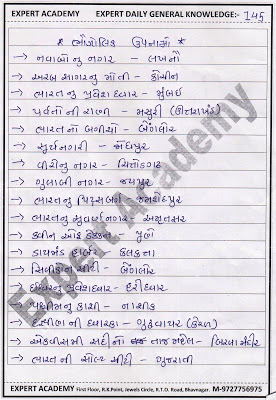 EXPERT ACADEMY EXPERT DAILY GENERAL KNOWLEDGE:- 145
* ભૌગોલિક ઉપનામો *
→ નવાબોનુ નગર - લખનૌ
→ અરબ સાગરનુ મોતી - કોચીન
→ ભારતનુ પ્રવેશદ્વાર - મુંબઇ
→ પર્વતોની રાણી - મસુરી (ઉત્તરાખંડ)
→ ભારતનો બગીચો - બેંગલોર
→ સુર્યનગરી - જોધપુર
→ વીરોનુ નગર - ચિત્તોડગઢ
→ ગુલાબી નગર - જયપુર
→ ભારતનુ પિટ્સબર્ગ - જમશેદપુર
→ ભારતનુ સુવર્ણનગર - અમૃતસર
→ ક્વીન ઓફ ડેક્કન - પુણે
→ ડાયમંડ હાર્બર - કલકત્તા
→ સિલિકોન સીટી - બેંગલોર
→ પ્રવેશદ્વાર - હરીદ્વાર
→ પશ્ચિમનુ કાશી - નાશીક
→ દક્ષિણની દ્વારકા - ગુરુવાયુર (કેરળ)
→ એકવીસમી સદીનો તાજ મહેલ - બિરલા મંદિર
→ ભારતની સોલ્ટ સીટી - ગુજરાત
Expert Academy
EXPERT ACADEMY First Floor, R.K.Point, Jewels Circle, R.T.O. Road, Bhavnagar. M-9727756975